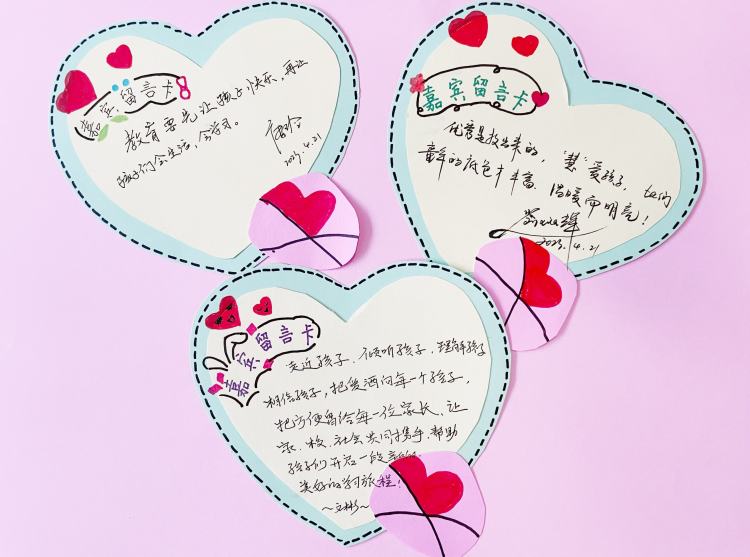 嘉宾留言卡
教育要先让孩子快乐，再让
孩子们会生活，会学习。
2023.4.21
嘉宾留言卡
优秀是教出来的，“慧”爱孩子，她们
童年的底色才丰富、温暖而明亮！
2023.4.21
嘉宾留言卡
走近孩子、倾听孩子、理解孩子
相信孩子，把爱洒向每一个孩子，
把方便留给每一位家长、让
家、校、社会共同携手、帮助
孩子们开启一段
美好的学习旅程！
～文彬～